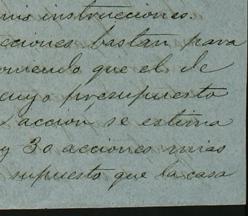 mis instrucciones.
cciones bastan para
oniendo que el de
cuyo presupuesto
accion se estima
y 30 acciones mias
supuesto que la casa